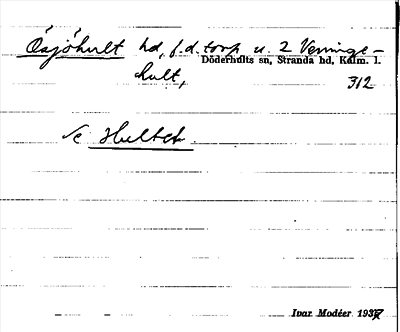 Ösjöhult hd, f.d. torp u. 2 Venninge-
Döderhults sn, Stranda hd, Kalm. l.
hult, 312
/e Hultet
Ivar Modéer 1937